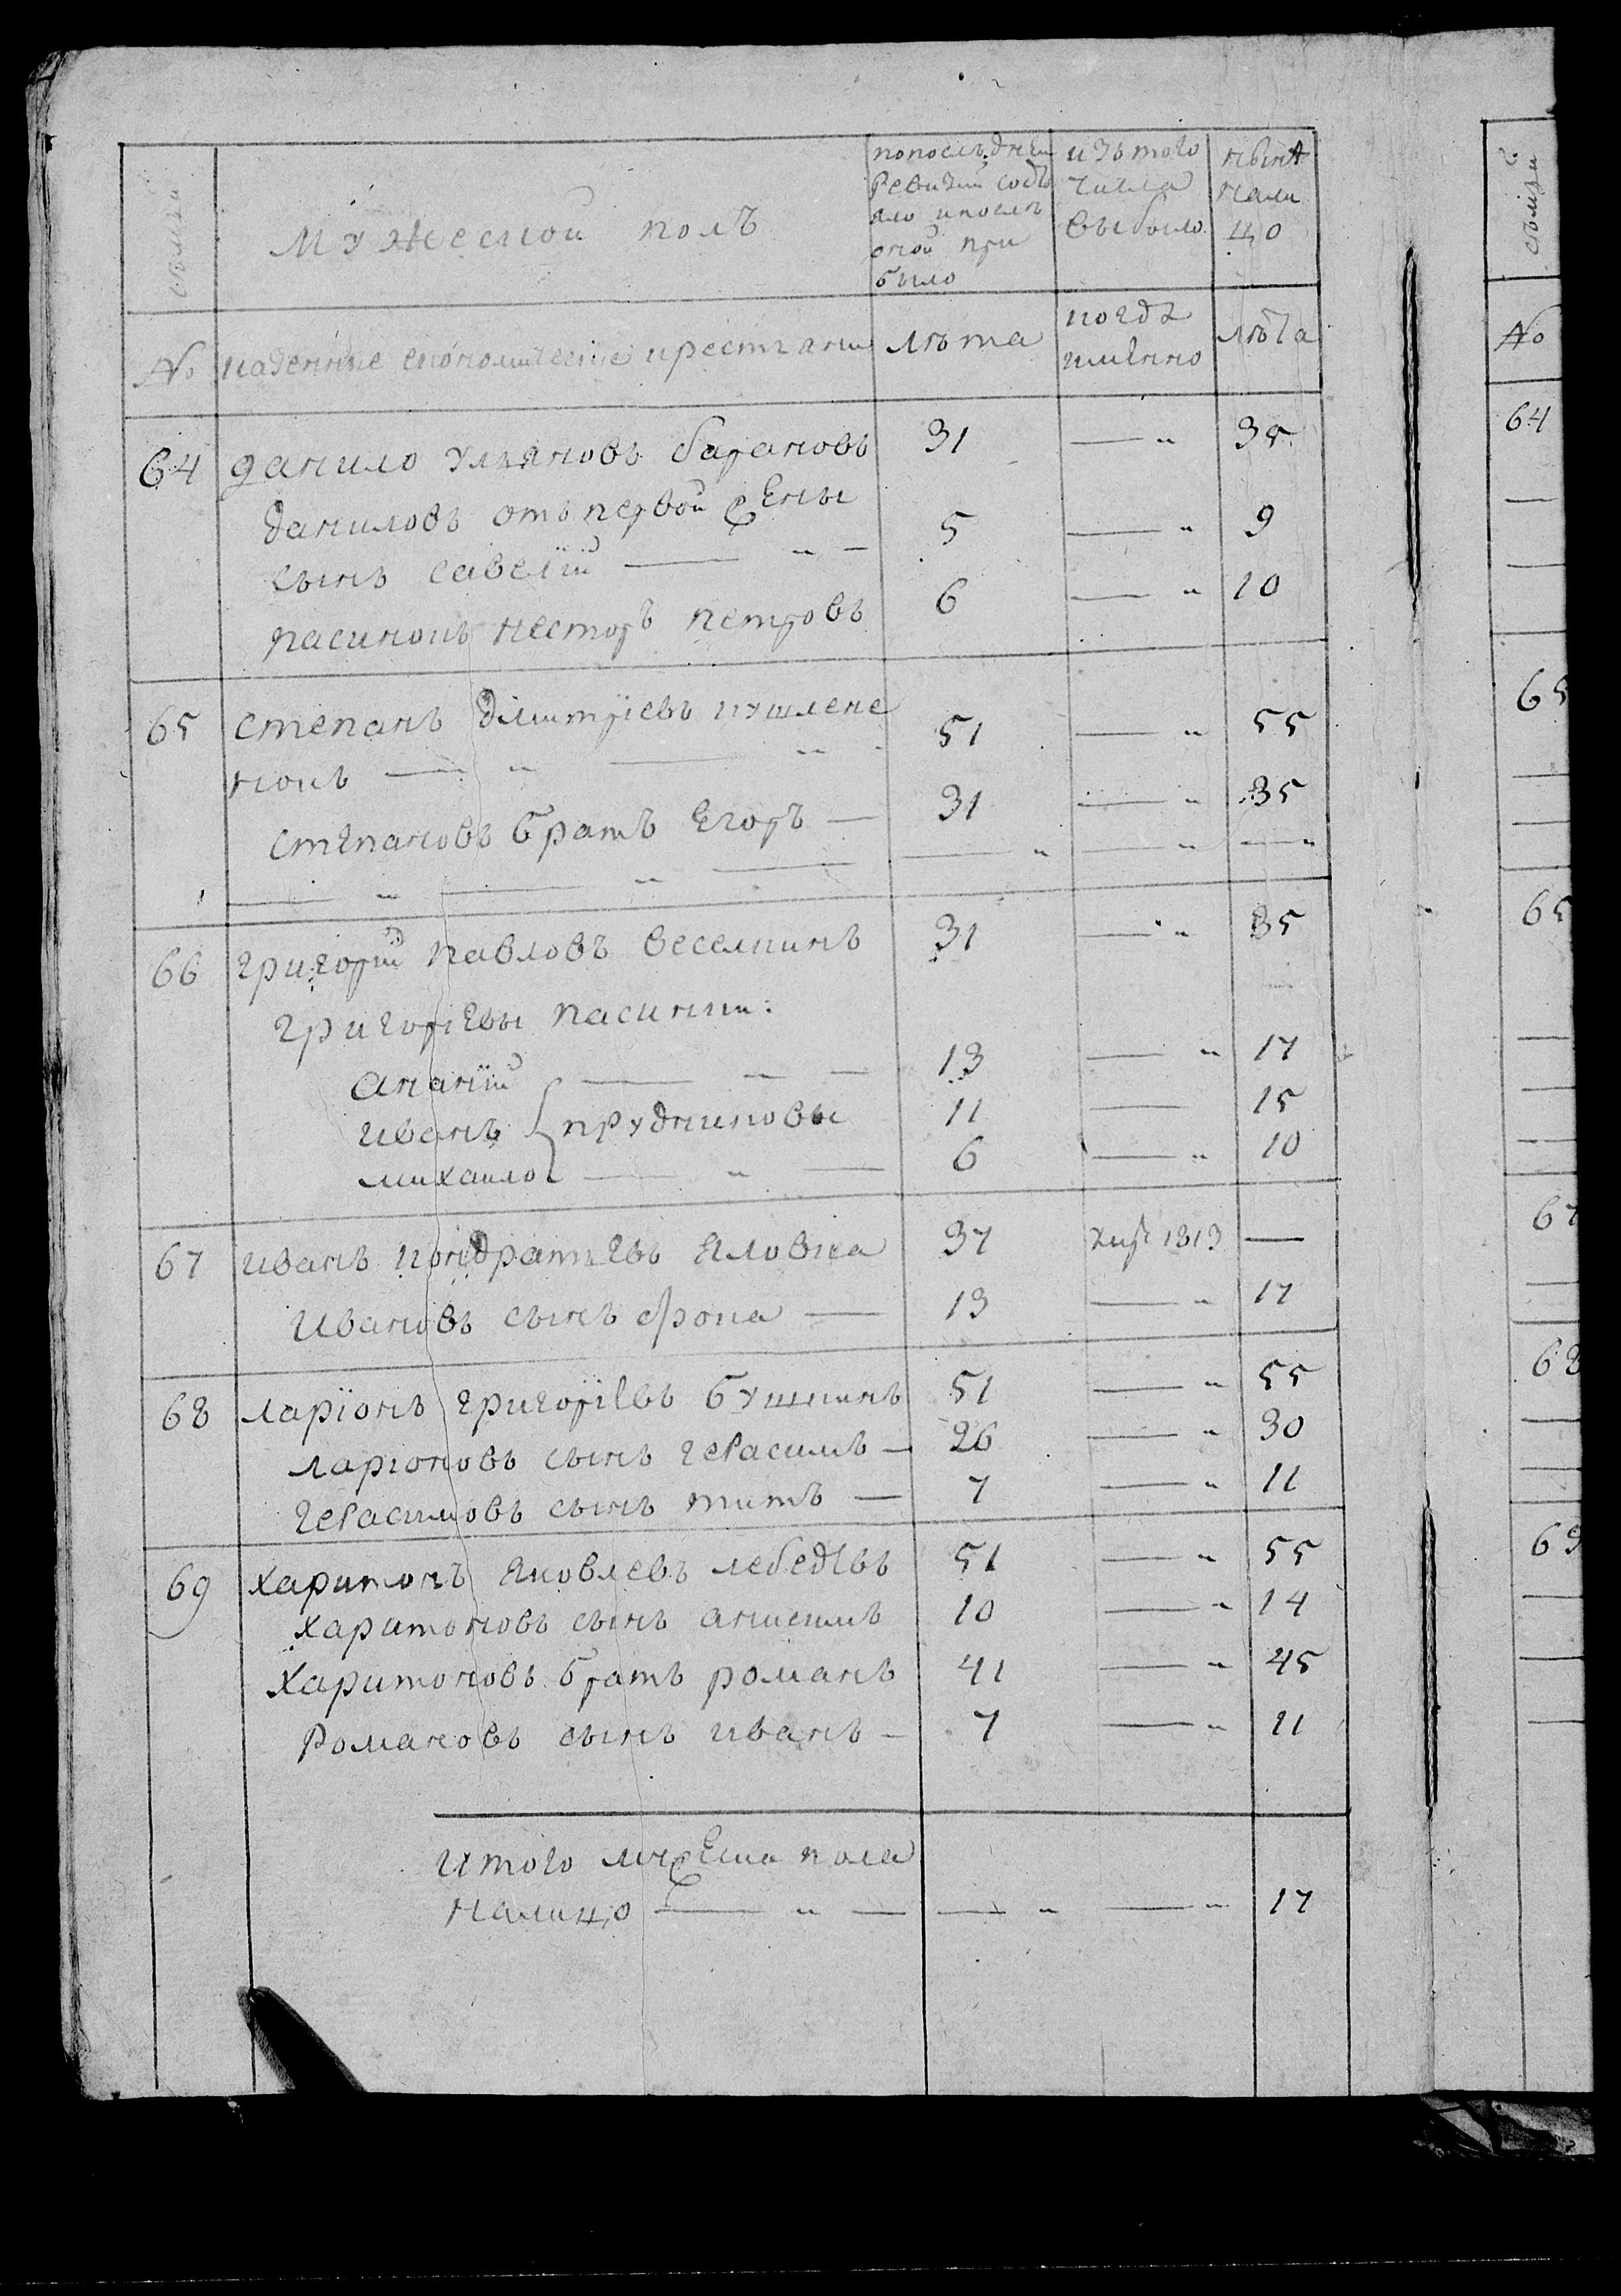 семьи
мужеской полъ
попослѣдней
ревизии состо
яло ипослѣ
оной при
было
изъ того
числа
выбыло
нынѣ
нали
цо
№ казенные економические крестьяни лѣта
когда
имянно
лѣта
64 данило ульяновъ барановъ 31 — " 35
даниловъ отъ первой жены
сынъ савелiй — " — 5 — " 9
пасинокъ несторъ петровъ 6 — " 10
65 степанъ дмитрiевъ кушлене
нокъ — " — " 51 — " 55
степановъ братъ егоръ — 31 — " 35
— " — " — — " — " — "
66 григорiй павловъ веселкинъ 31 — " 35
григорiевы пасинки:
ананiй — " — 13 — " 17
иванъ прудниковы 11 — 15
михаило — " — 6 — " 10
67 иванъ кондратьевъ яловка 37 1813 —
ивановъ сынъ фока — 13 — " 17
68 ларiонъ григорiевъ бушкинъ 51 — " 55
ларiоновъ сынъ герасимъ — 26 — " 30
герасимовъ сынъ титъ — 7 — " 11
69 харитонъ яковлевъ лебедевъ 51 — " 55
харитоновъ сынъ анисимъ 10 — " 14
харитоновъ братъ романъ 41 — " 45
романовъ сынъ иванъ — 7 — " 11
итого мужеска пола
налицо — " — — " — " 17
семьи
№
64
65
65
67
68
69